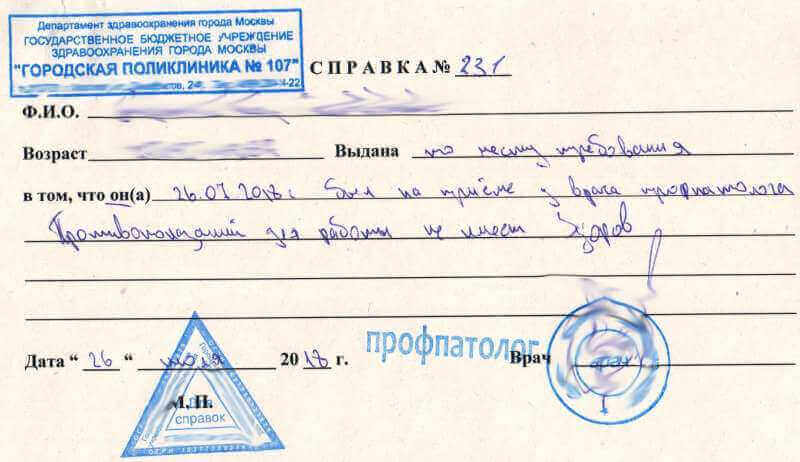 Департамент здравоохранения города Москвы
ГОСУДАРСТВЕННОЕ БЮДЖЕТНОЕ УЧРЕЖДЕНИЕ
ЗДРАВООХРАНЕНИЯ ГОРОДА МОСКВЫ
"ГОРОДСКАЯ ПОЛИКЛИНИКА № 107"
СПРАВКА № 231
Ф.И.О.
Возраст Выдана по месту требования
в том, что он(а) 26.07.2018г был на приёме у врача профпатолога
Противопоказаний для работы не имеет Здоров
профпатолог
Дата " 26 " июля 2018 г. Врач
М.П.
Для
справок
врач